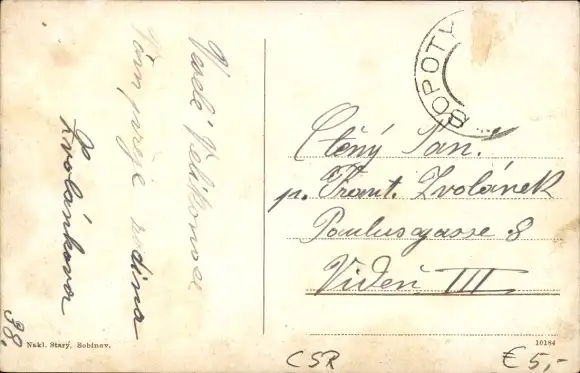 Veselé Velikonoce
Vám přeje rodina
Zvolánkova
38.
Nakl. Starý, Sobínov.
SOPOTY
Ctěný Pan.
p. Frant. Zvolánek
Paulusgasse 8
Videň III
10184
ČSR
€ 5,-